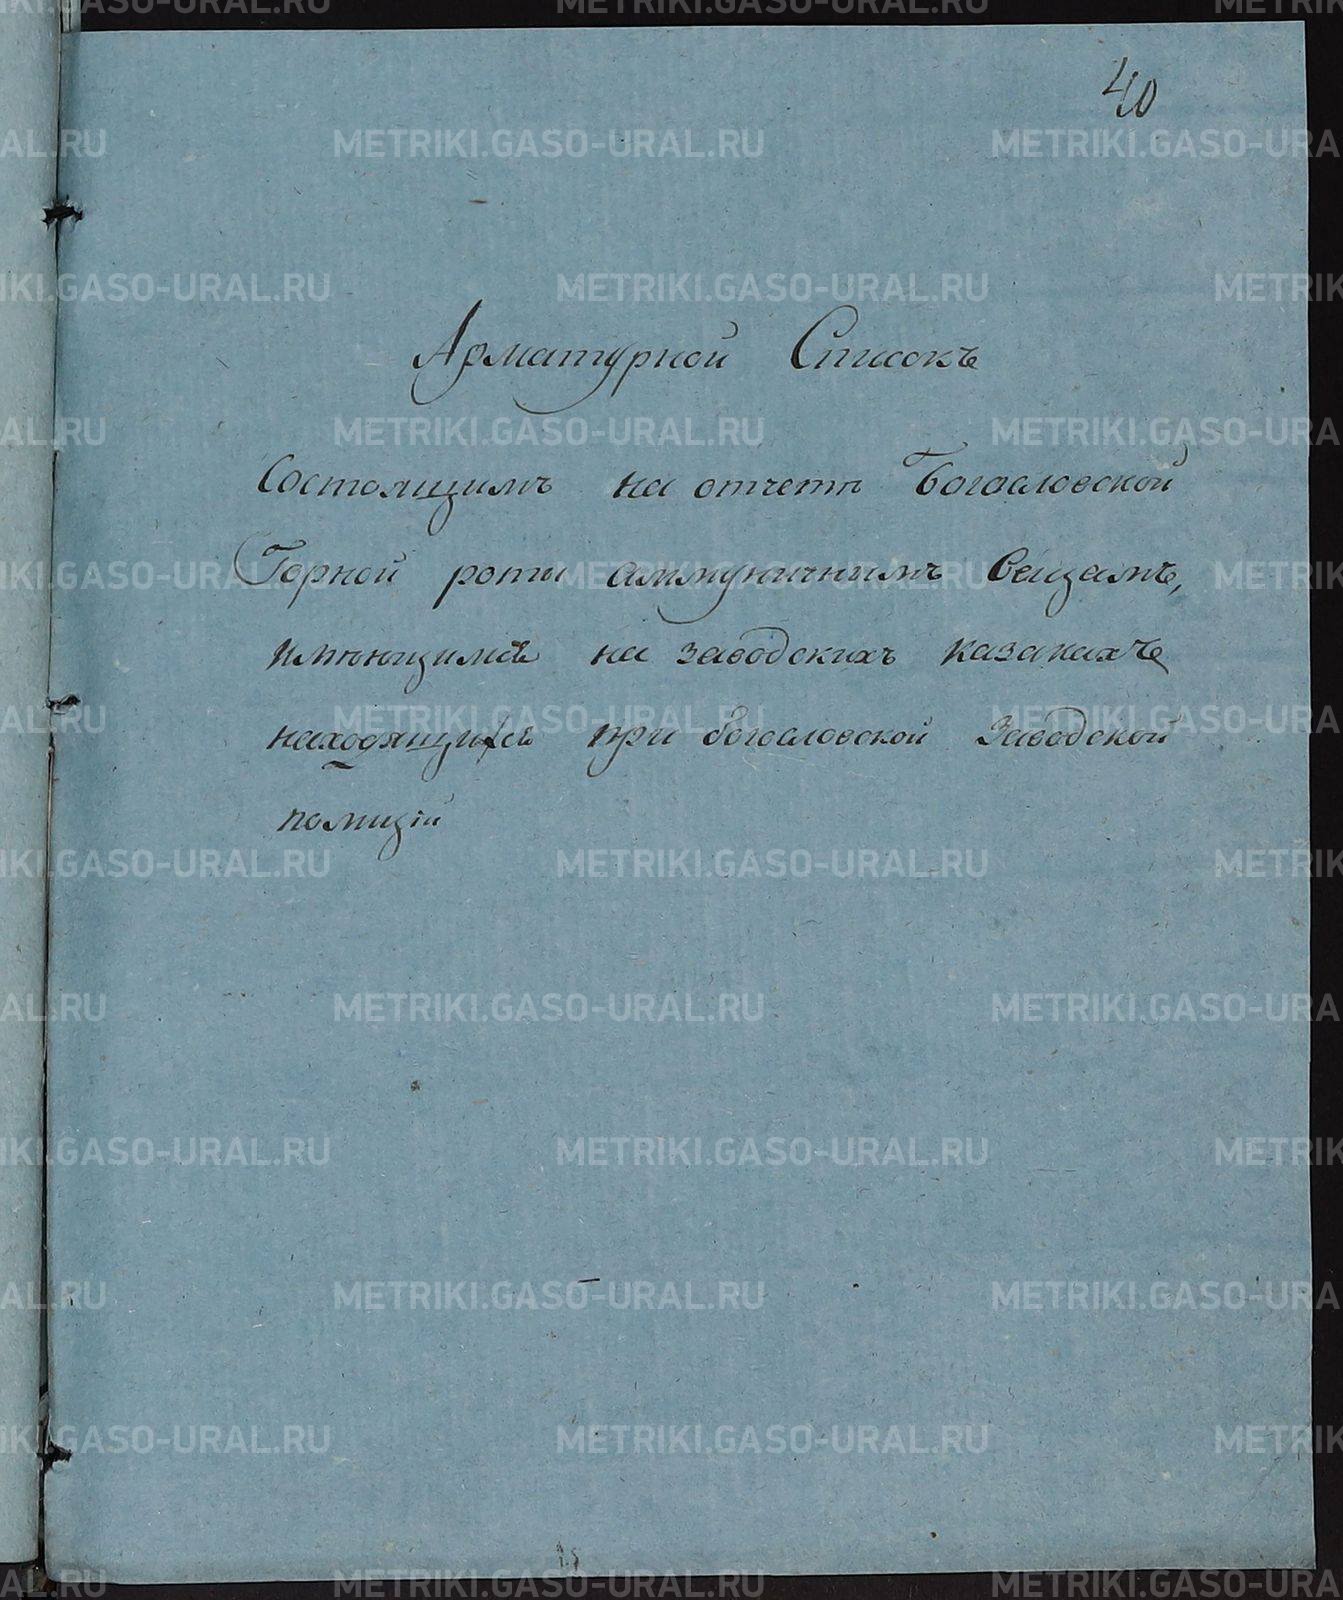 40
Арматурной Списокъ
Состоящимъ на отчетѣ Богословской
Горной роты аммуничнымъ вещамъ,
имѣющимся на заводскихъ казакахъ
находящихся при богословской Заводской
полиціи